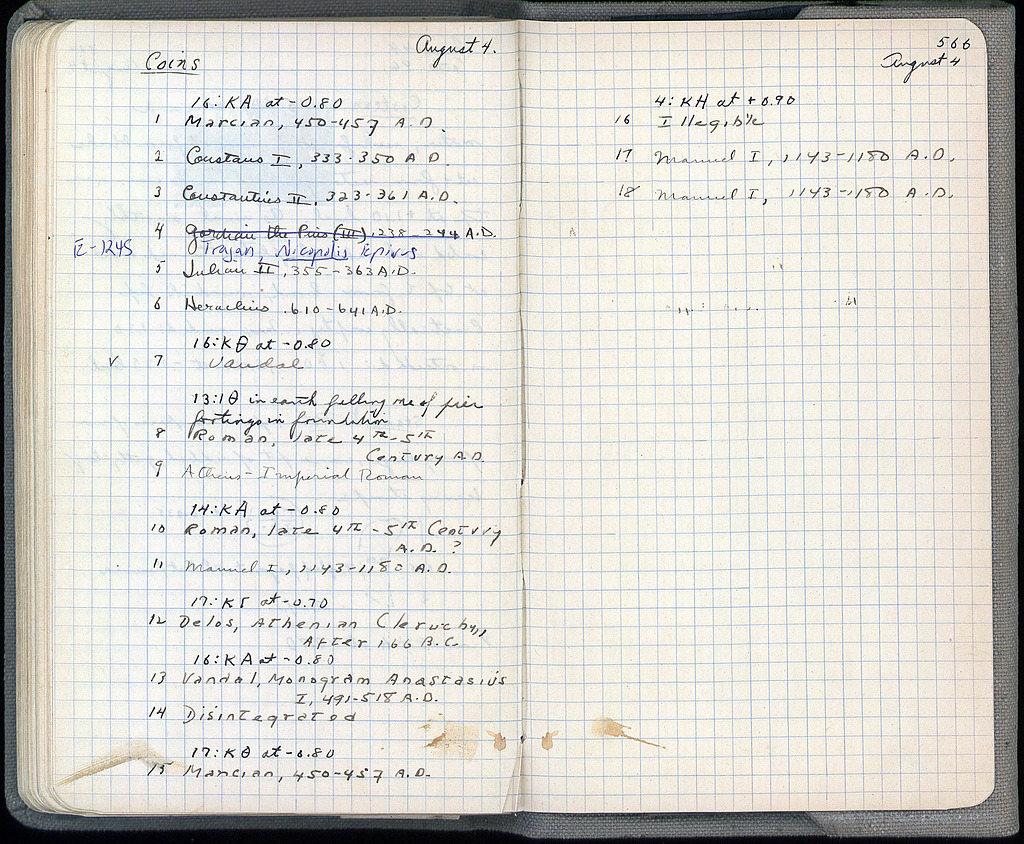 August 4.
Coins
16:ΚΑ at -0.80
1 Marcian, 450-457 A.D.
2 Constans I, 333-350 A D.
3 Constantius II, 323-361 A.D.
4 Gordian the Pius (III), 238-244 A.D.
Σ-1245 Trajan, Nicopolis Epirus
5 Julian II, 355-363 A.D.
6 Heraclius. 610-641 A.D.
16:ΚΘ at -0.80
v 7 Vandal
13:ΙΘ in earth filling one of pier
footings in foundation
8 Roman, late 4th-5th
Century A.D.
9 Athens-Imperial Roman
14:ΚΑ at -0.80
10 Roman, late 4th-5th Century
A.D. ?
11 Manuel I, 1143-1180 A.D.
17:ΚΓ at -0.70
12 Delos, Athenian Cleruchy,
After 166 B.C.
16:ΚΑ at -0.80
13 Vandal, Monogram Anastasius
I, 491-518 A.D.
14 Disintegrated
17:ΚΘ at -0.80
15 Marcian, 450-457 A.D.
566
August 4
4:ΚΗ at +0.90
16 Illegible
17 Manuel I, 1143-1180 A.D.
18 Manuel I, 1143-1180 A.D.